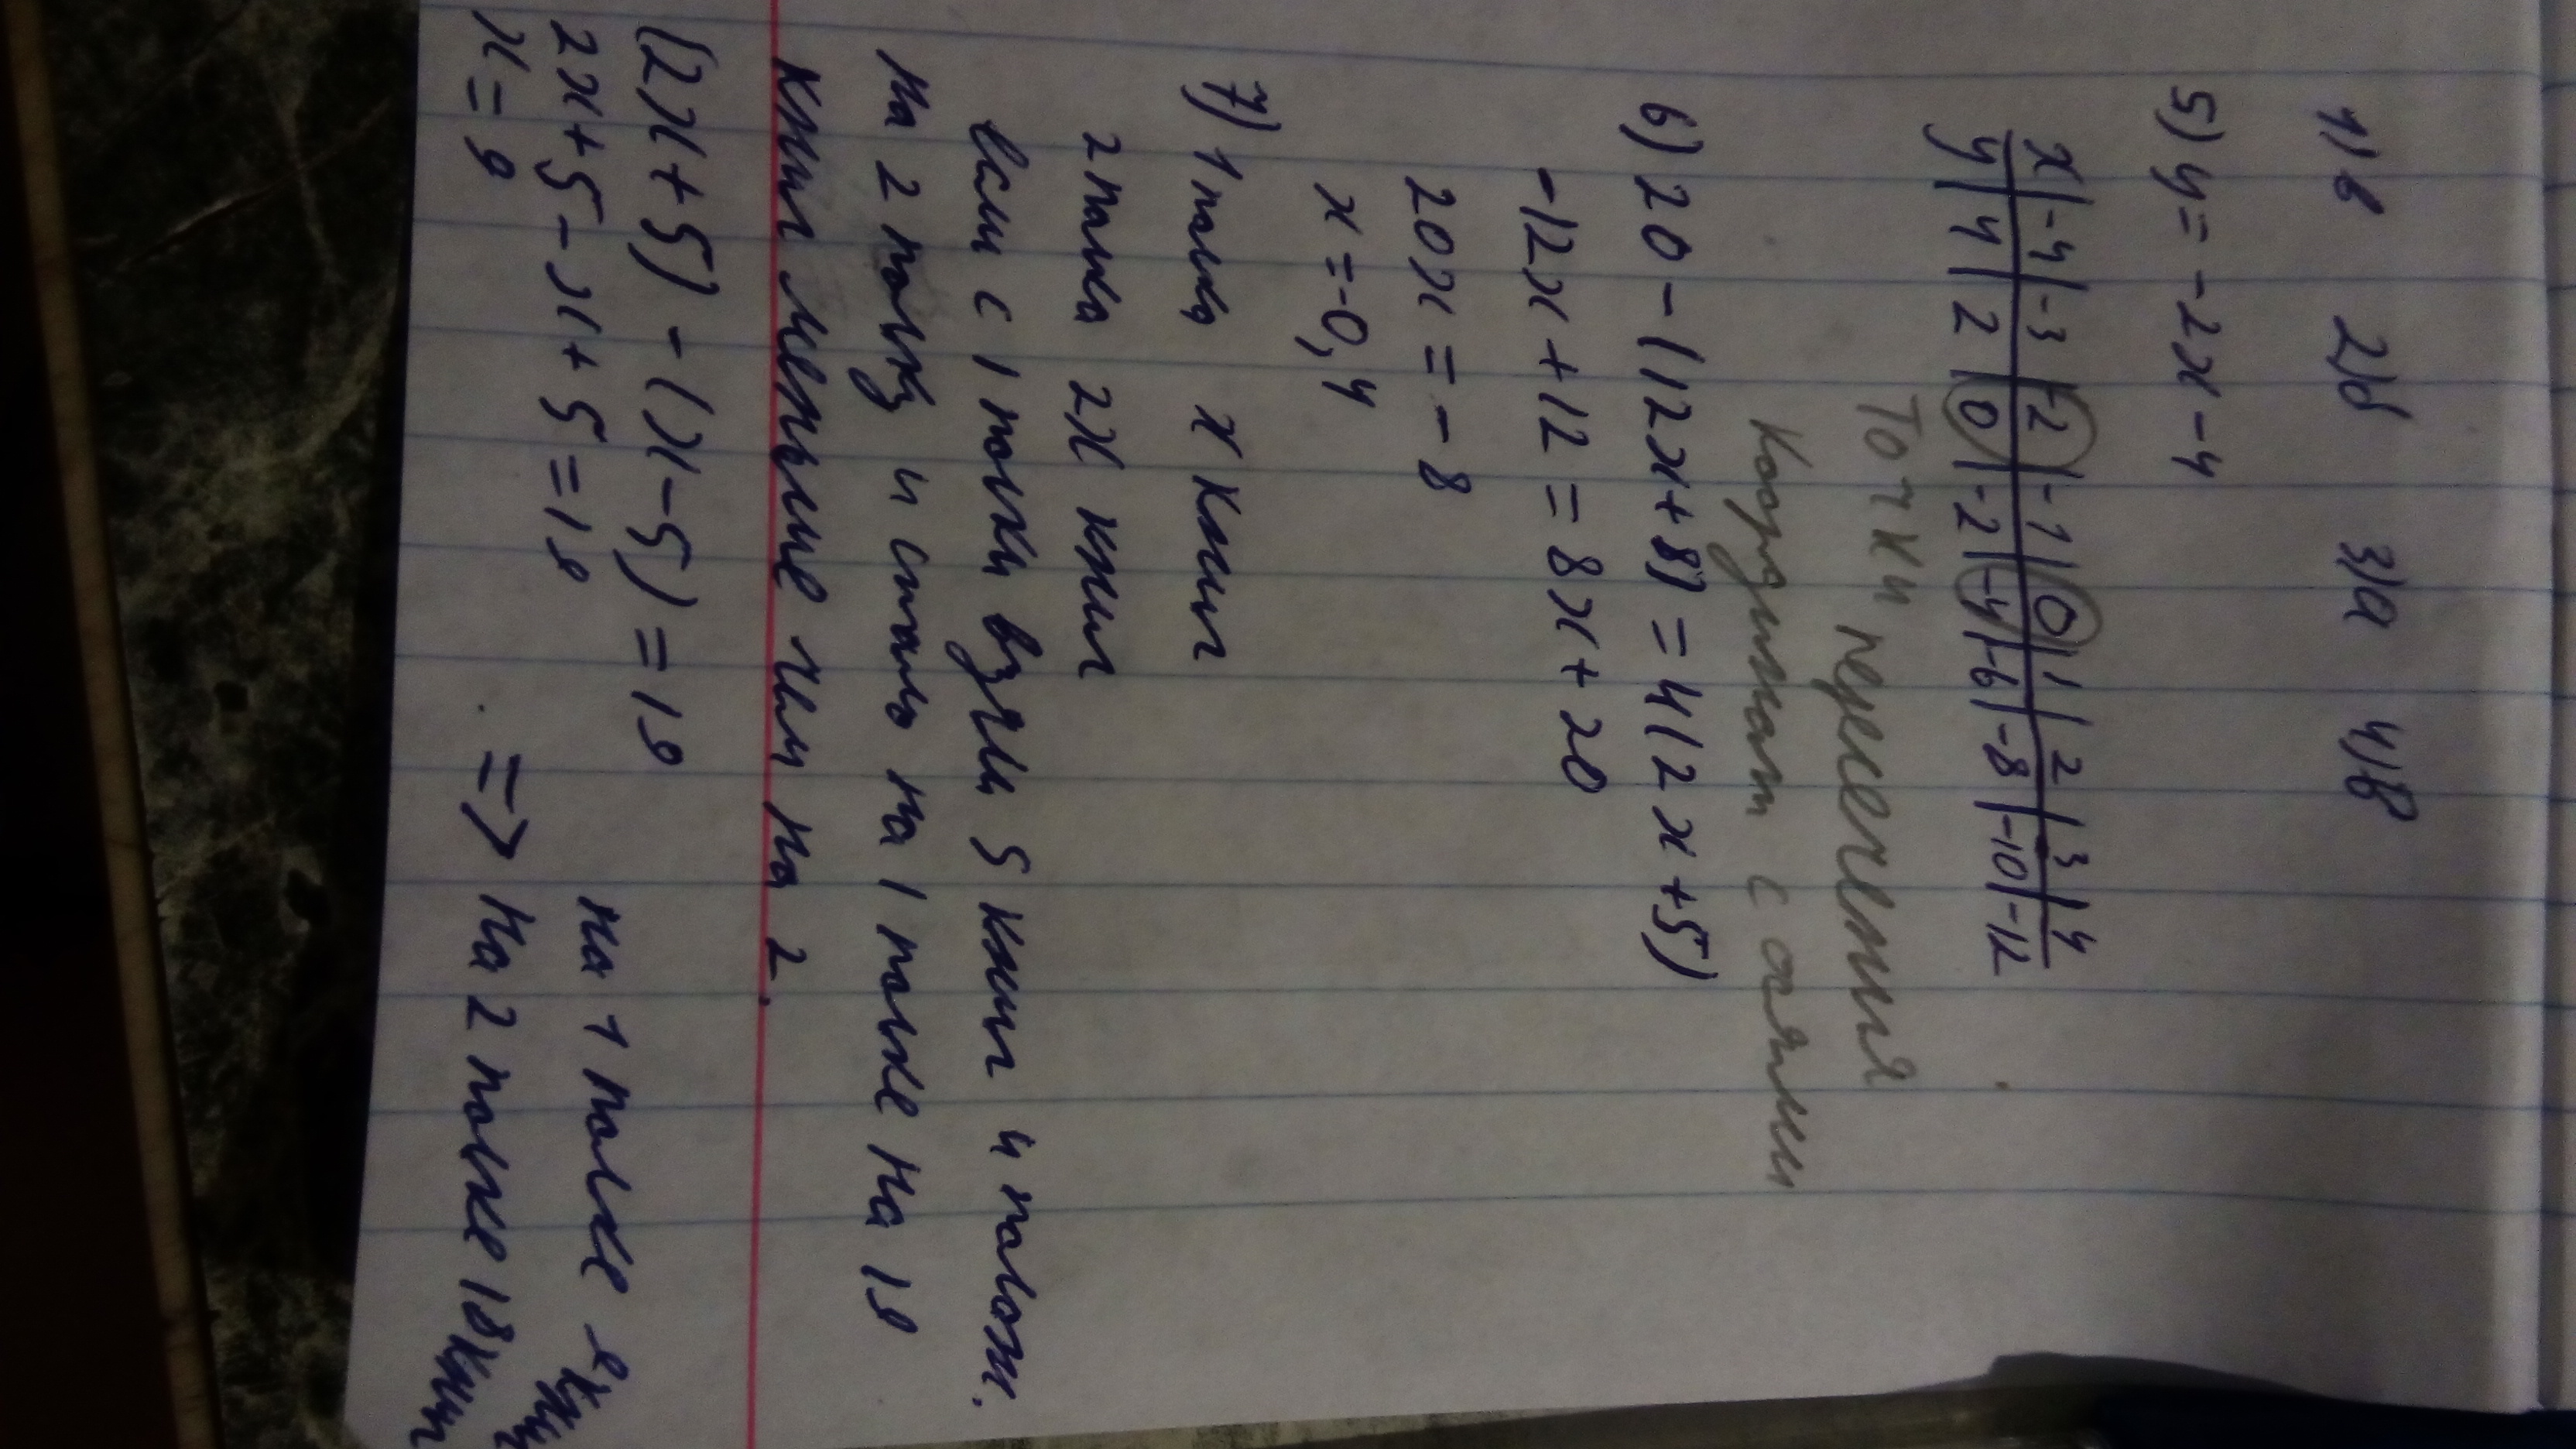 1) в 2) б 3) а 4) в
5) y = -2x - 4
x | -4 | -3 | -2 | -1 | 0 | 1 | 2 | 3 | 4
y | 4 | 2 | 0 | -2 | -4 | -6 | -8 | -10 | -12
Точки пересечения
Координат с осями
6) 20 - (12x + 8) = 4(2x + 5)
-12x + 12 = 8x + 20
20x = -8
x = -0,4
7) 1 полка x книг
2 полка 2x книг
если с 1 полки взяли 5 книг и полож.
на 2 полку и стало на 1 полке на 19
книг меньше чем на 2.
(2x + 5) - (x - 5) = 19
2x + 5 - x + 5 = 19
x = 9
=> на 1 полке 9 книг
на 2 полке 18 книг